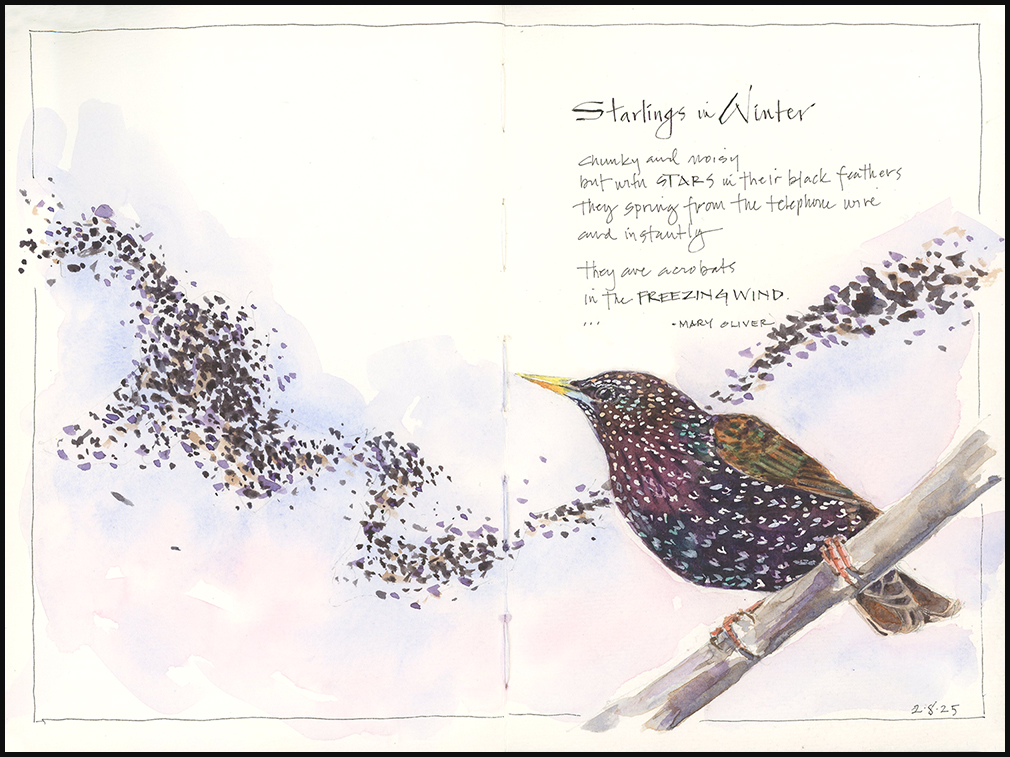 Starlings in Winter
chunky and noisy
but with STARS in their black feathers
they spring from the telephone wire
and instantly
they are acrobats
in the FREEZING WIND.
...
-MARY OLIVER
2.8.25